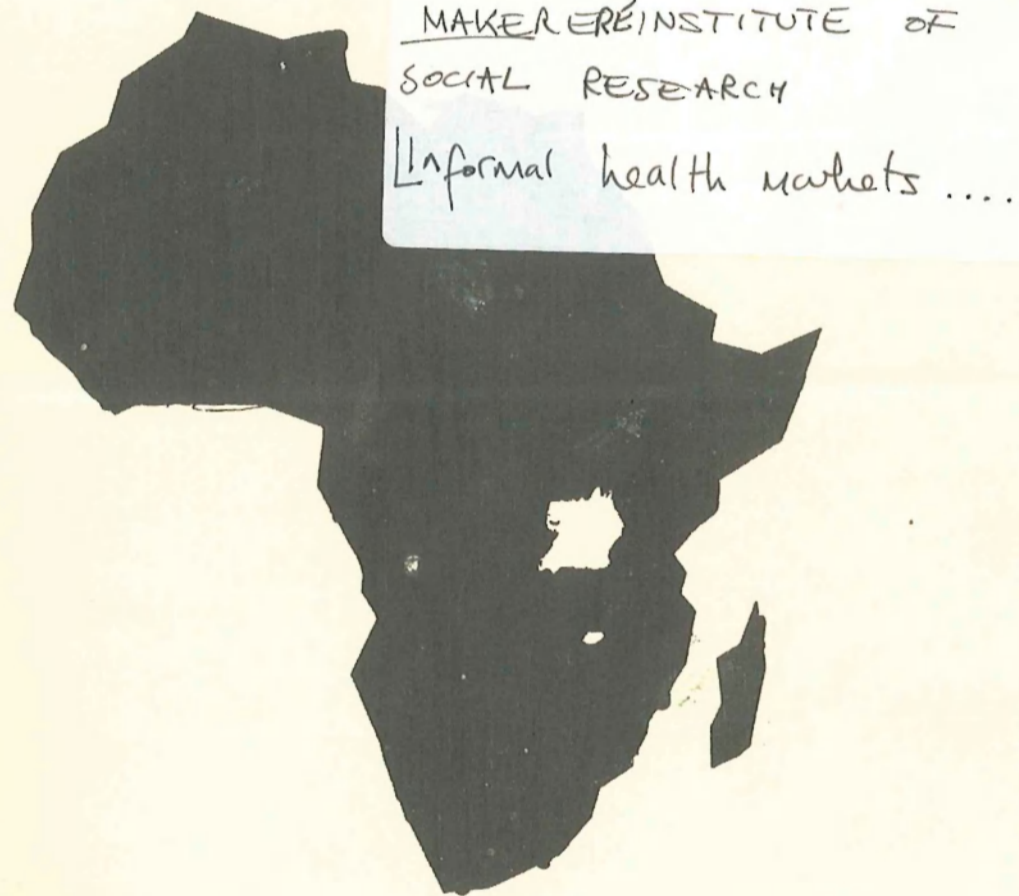 MAKERERE INSTITUTE OF
SOCIAL RESEARCH
Informal health markets ....